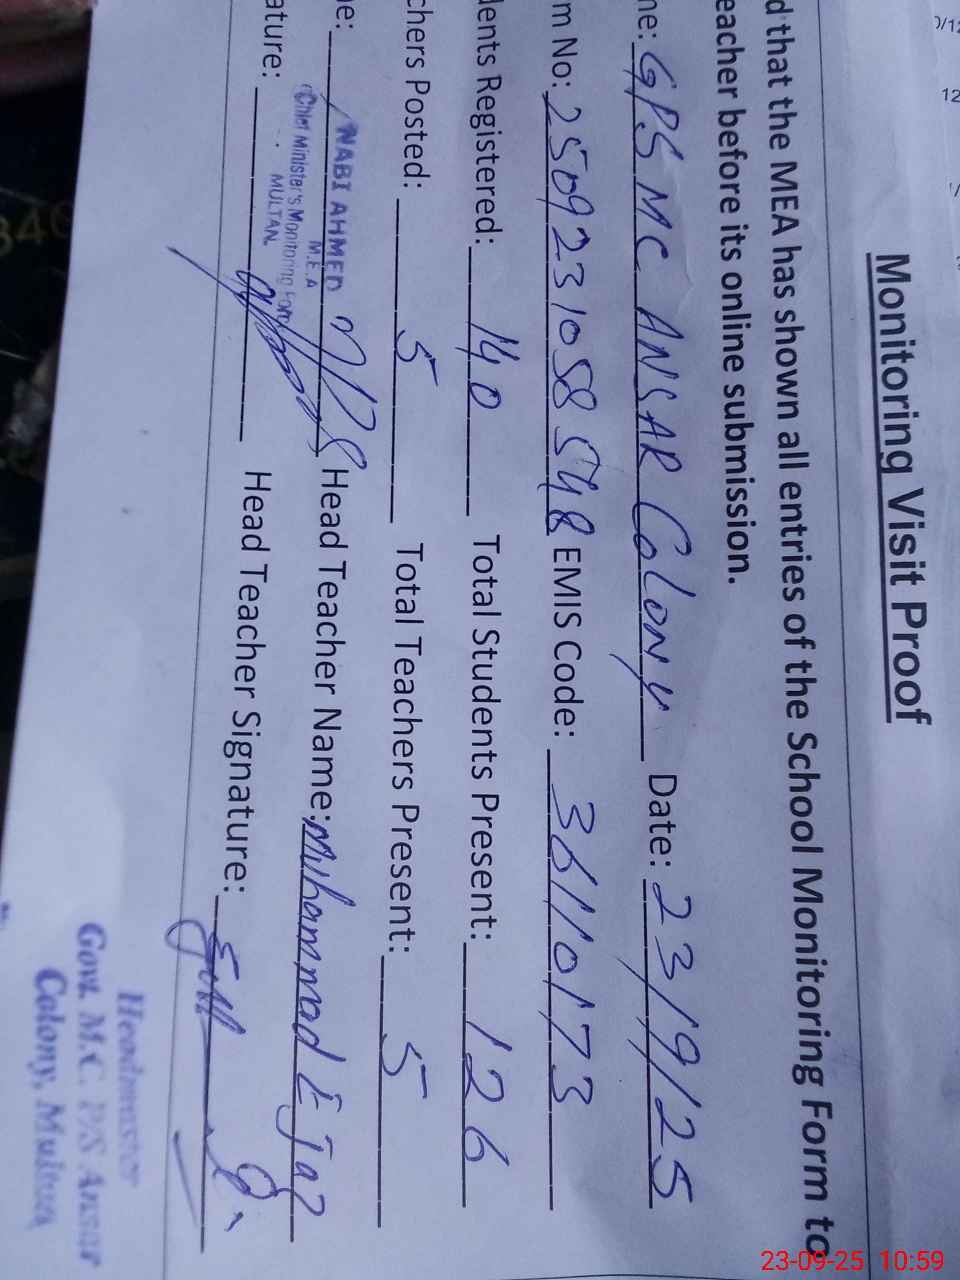 Monitoring Visit Proof
d that the MEA has shown all entries of the School Monitoring Form to
eacher before its online submission.
ne: GPS MC ANSAR Colony Date: 23/9/25
m No: 2509231058548 EMIS Code: 36110173
dents Registered: 140 Total Students Present: 126
chers Posted: 5 Total Teachers Present: 5
e: NABI AHMED Head Teacher Name: Muhammad Ejaz
M.E.A
Chief Minister's Monitoring Force
MULTAN.
ature: Head Teacher Signature:
Headmaster
Govt. M.C. P/S Ansar
Colony, Multan
23-09-25 10:59